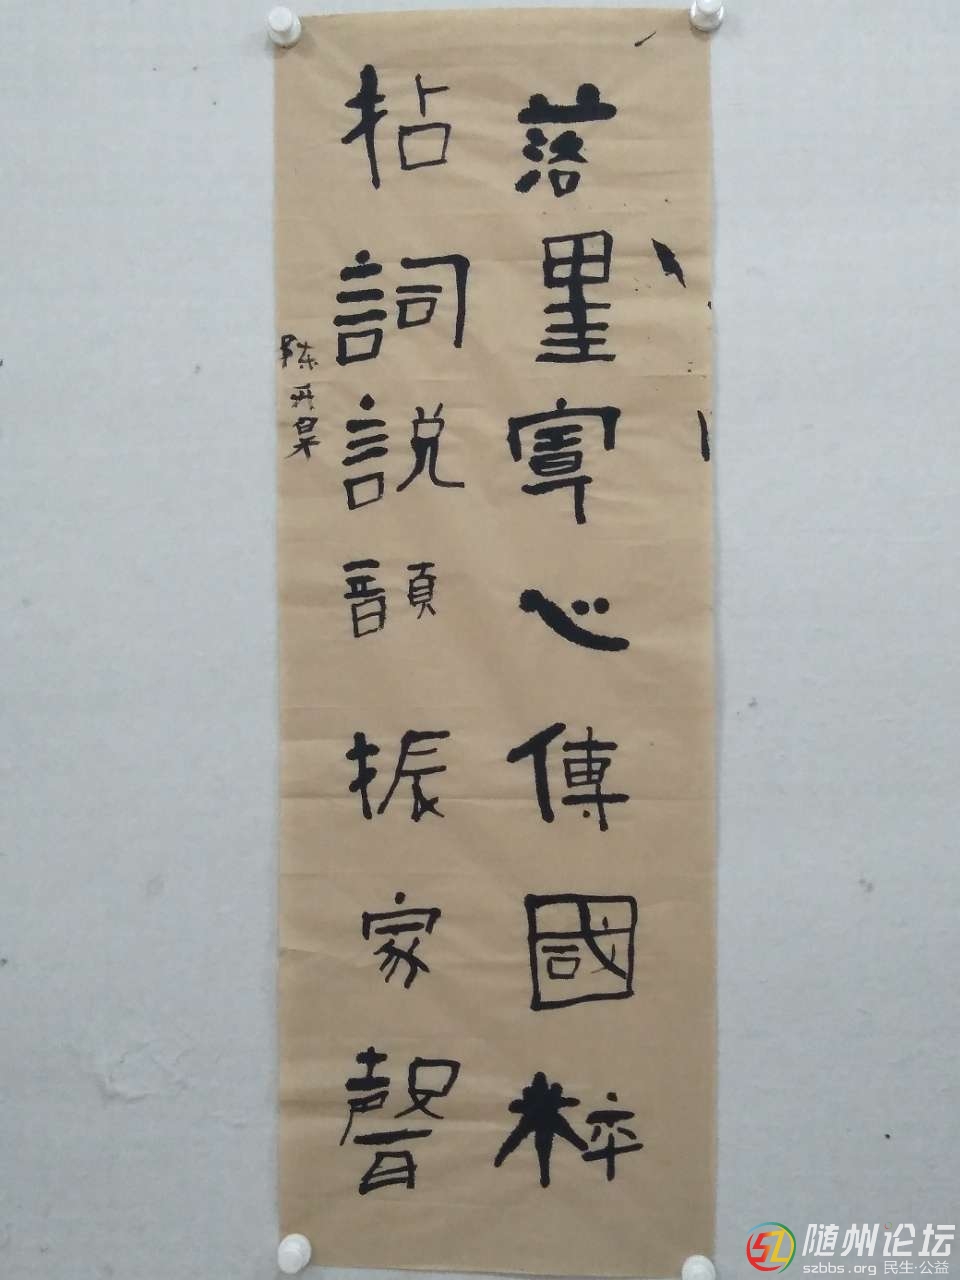 落墨覃心傳國粹
拈詞說韻振家聲
陈丹
随州论坛
szbbs.org 民生·公益